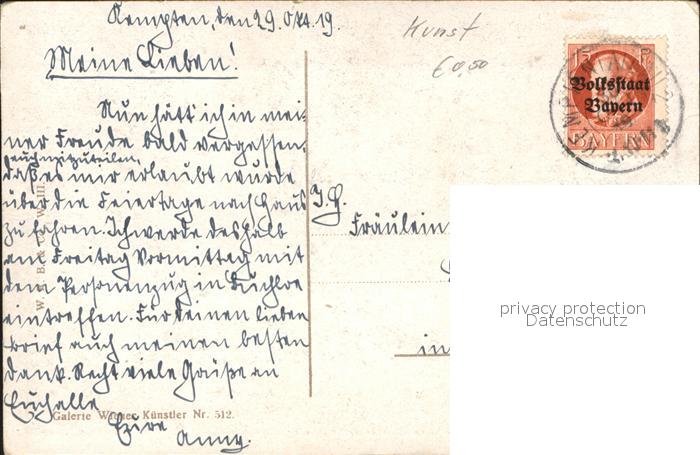 Kempten, den 29. Okt. 19.
Kunst
€0,50
Meine Lieben!
Nun hätt' ich in mei-
ner Freude bald vergessen,
euch mizuteilen,
daß es mir erlaubt wurde
über die Feiertage nach Haus
zu fahren. Ich werde deshalb
am Freitag Vormittag mit
dem Personenzug in Buchloe
eintreffen. Für Deinen lieben
Brief auch meinen besten
Dank. Recht viele Grüße an
Euch alle
Eure
Anny.
Galerie Wiener Künstler Nr. 512.
15
Volksstaat
Bayern
BAYERN
KEMPTEN
Fräulein
in
privacy protection
Datenschutz